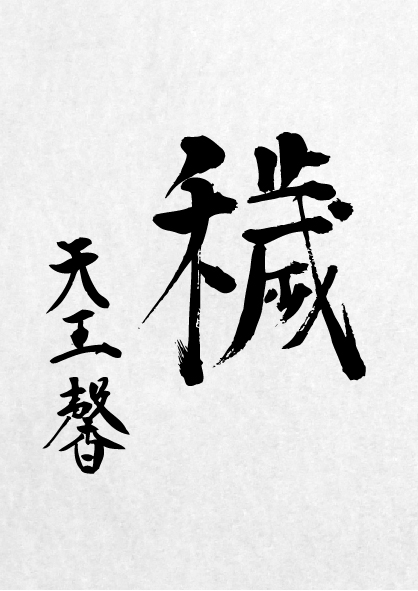 穢
天王馨